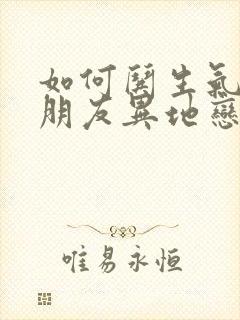 如何鬨生氣
朋友異地戀
唯易永恒